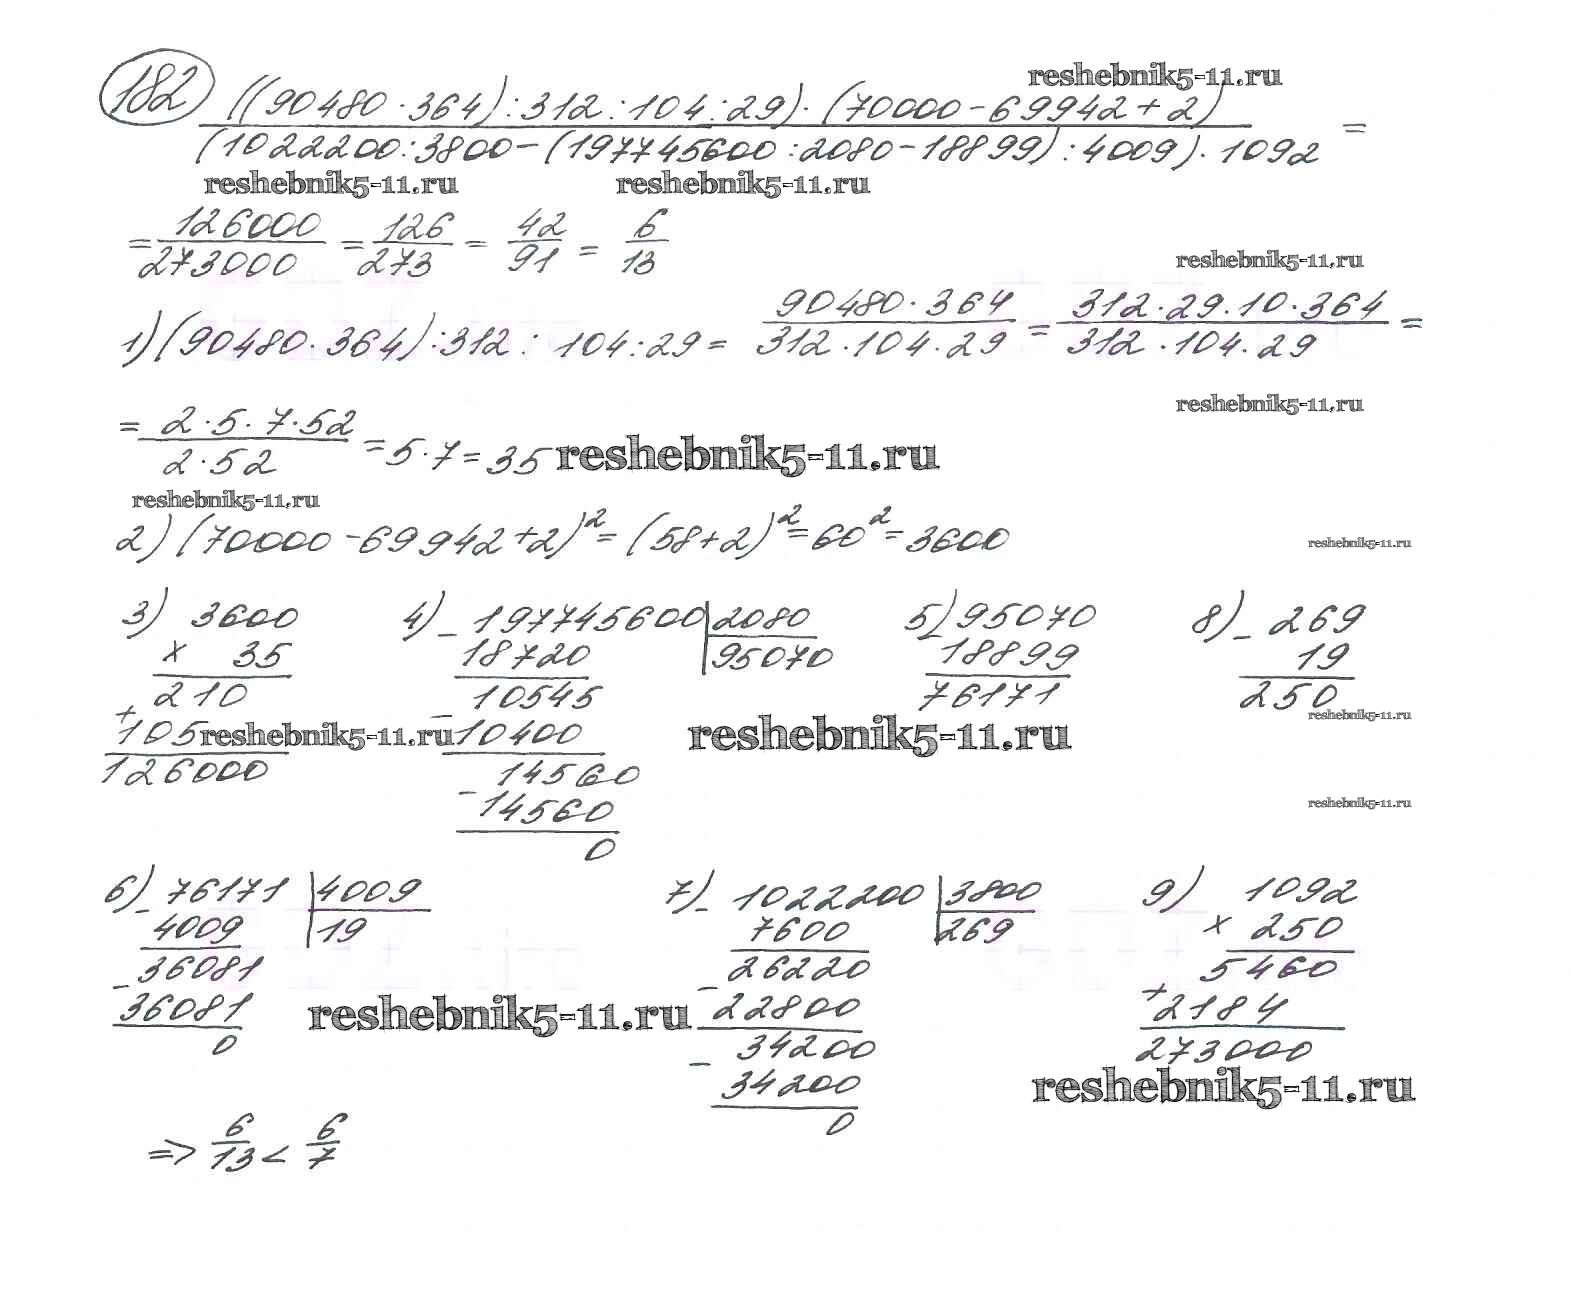 182 ((90480 · 364) : 312 : 104 : 29) · (70000 - 69942 + 2) reshebnik5-11.ru
(1022200 : 3800 - (197745600 : 2080 - 18899) : 4009) · 1092 =
reshebnik5-11.ru reshebnik5-11.ru
= 126000/273000 = 126/273 = 42/91 = 6/13
reshebnik5-11.ru
1) (90480 · 364) : 312 : 104 : 29 = 90480 · 364/312 · 104 · 29 = 312 · 29 · 10 · 364/312 · 104 · 29 =
reshebnik5-11.ru
= 2 · 5 · 7 · 52/2 · 52 = 5 · 7 = 35 reshebnik5-11.ru
reshebnik5-11.ru
2) (70000 - 69942 + 2)² = (58 + 2)² = 60² = 3600 reshebnik5-11.ru
3) 3600
× 35
210
+
105 reshebnik5-11.ru
126000
4) - 197745600 | 2080
18720 | 95070
10545
-
10400
14560
- 14560
0
5) 95070
- 18899
76171
reshebnik5-11.ru
8) - 269
19
250
reshebnik5-11.ru
reshebnik5-11.ru
6) - 76171 | 4009
4009 | 19
- 36081
36081
0
reshebnik5-11.ru
7) - 1022200 | 3800
7600 | 269
- 26220
22800
- 34200
34200
0
9) 1092
× 250
5460
+ 2184
273000
reshebnik5-11.ru
=> 6/13 < 6/7